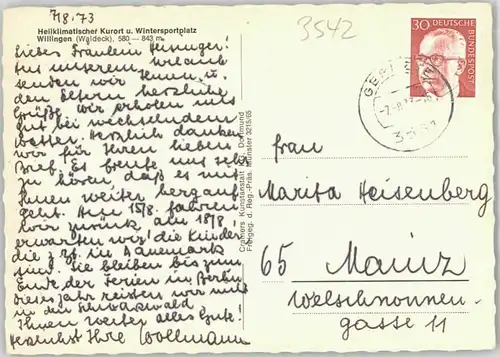 7/8.73
Heilklimatischer Kurort u. Wintersportplatz
Willingen (Waldeck), 580 — 843 m
Liebes Fräulein
Aus unserem Urlaub
senden wir Ihnen u.
den Eltern herzliche
Grüße. Wir erholen uns
gut bei wechselndem
Wetter. Herzlich danken
wir für Ihren lieben
Brief. Es freute uns sehr
zu hören, daß es mit
Ihnen weiter bergauf
geht. Am 15/8. fahren
wir zurück, am 18/8
erwarten wir die Kinder
die z. Zt. in Dänemark
sind. Sie bleiben bis zum
Ende der Ferien in Berlin
dieses Jahr reisten wir nicht
in den Schwarzwald
Ihnen weiter alles Gute!
herzlichst Ihre Wollmann
Cramers Kunstanstalt KG, Dortmund
Freigeg. d. Reg.-Präs. Münster 3215/65
3542
30 DEUTSCHE
BUNDESPOST
Frau
Marita Heisenberg
65 Mainz
Welschnonnen-
gasse 11